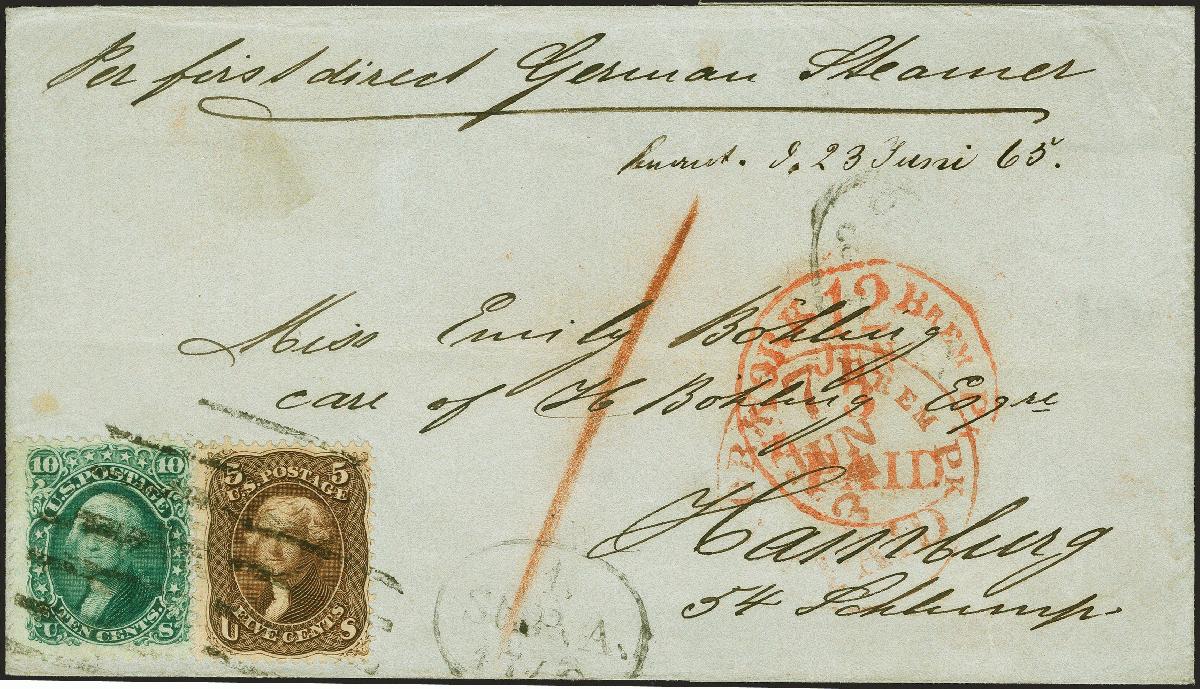 Per first direct German Steamer
d. 23 Juni 65.
Miss Emily Bohling
care of H Bohling Esqre
Hamburg
54 Schlump
12
BREM PK
PAID
10 10
U.S. POSTAGE
TEN CENTS.
U S
5 5
U.S. POSTAGE
FIVE CENTS
U S
1.
ST.P.A.